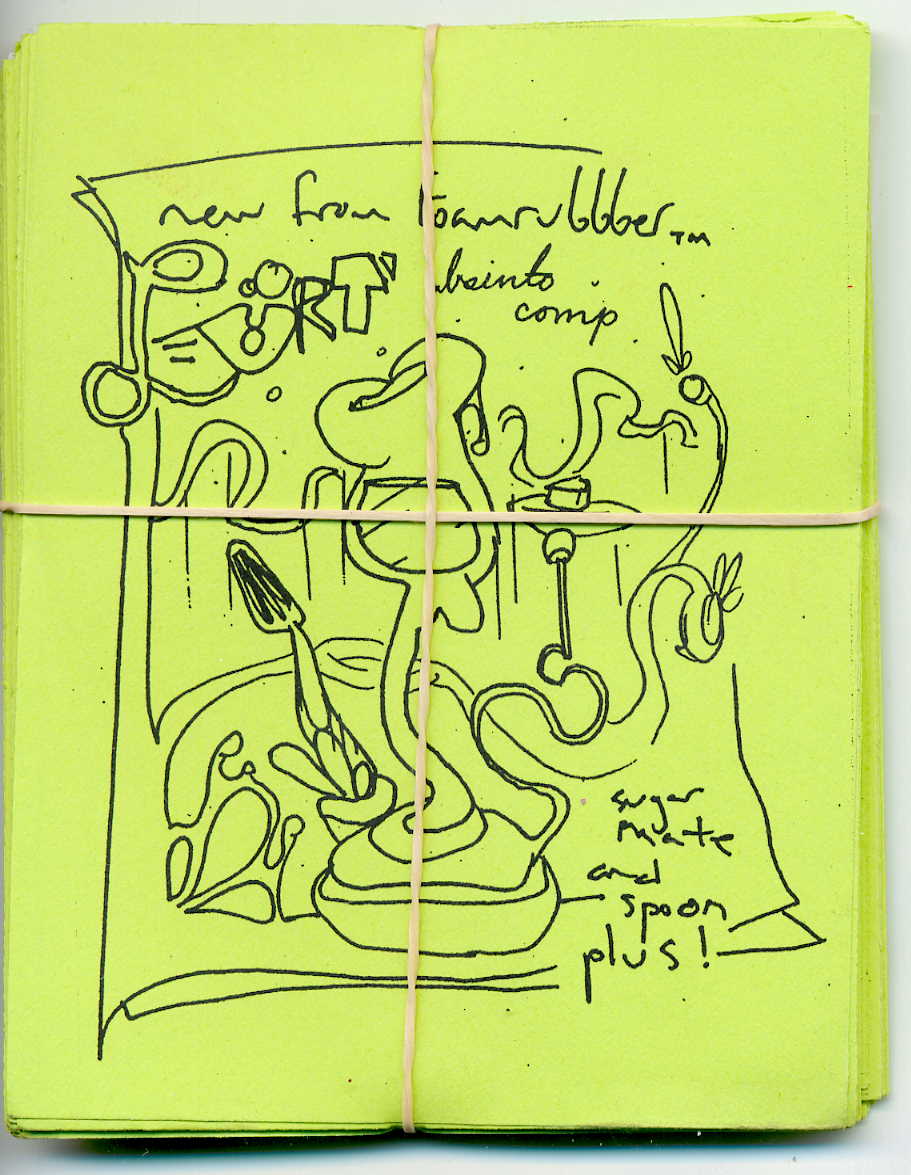 new from foamrubbber TM
absinto
comp.
sugar
mate
and
spoon
plus!